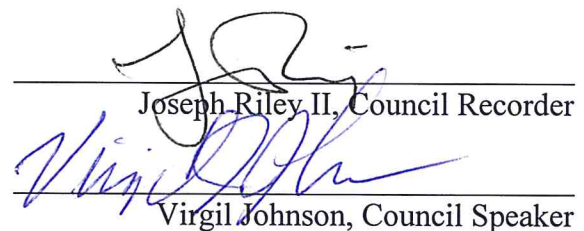 Joseph Riley II, Council Recorder
Virgil Johnson, Council Speaker